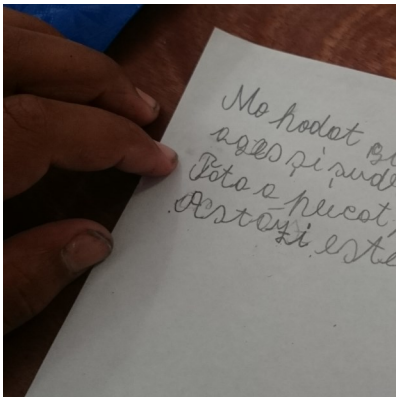 Mo hodot
ages și sude
Tota a plecat
Astăzi este